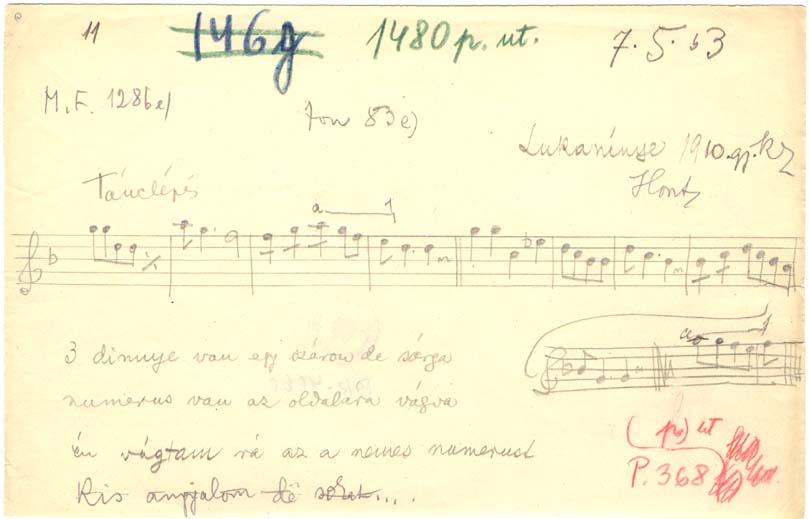 11 146g 1480 p. ut. 7.5.63
M.F. 1286e)
Ton 83e)
Lukanénye 1910. gy. KZ
Hont
Tánclépés
a
3 dinnye van egy száron de sárga
numerus van az oldalára vágva
a
én vágtam rá az a nemes numerust
(p) ut
P. 368
Kis angyalom dë